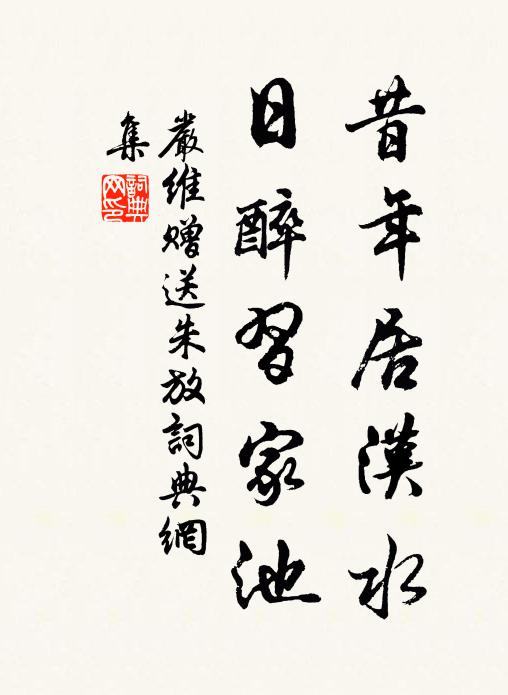 昔年居漢水
日醉習家池
嚴維贈送朱放詞典網
集
詞典
网印